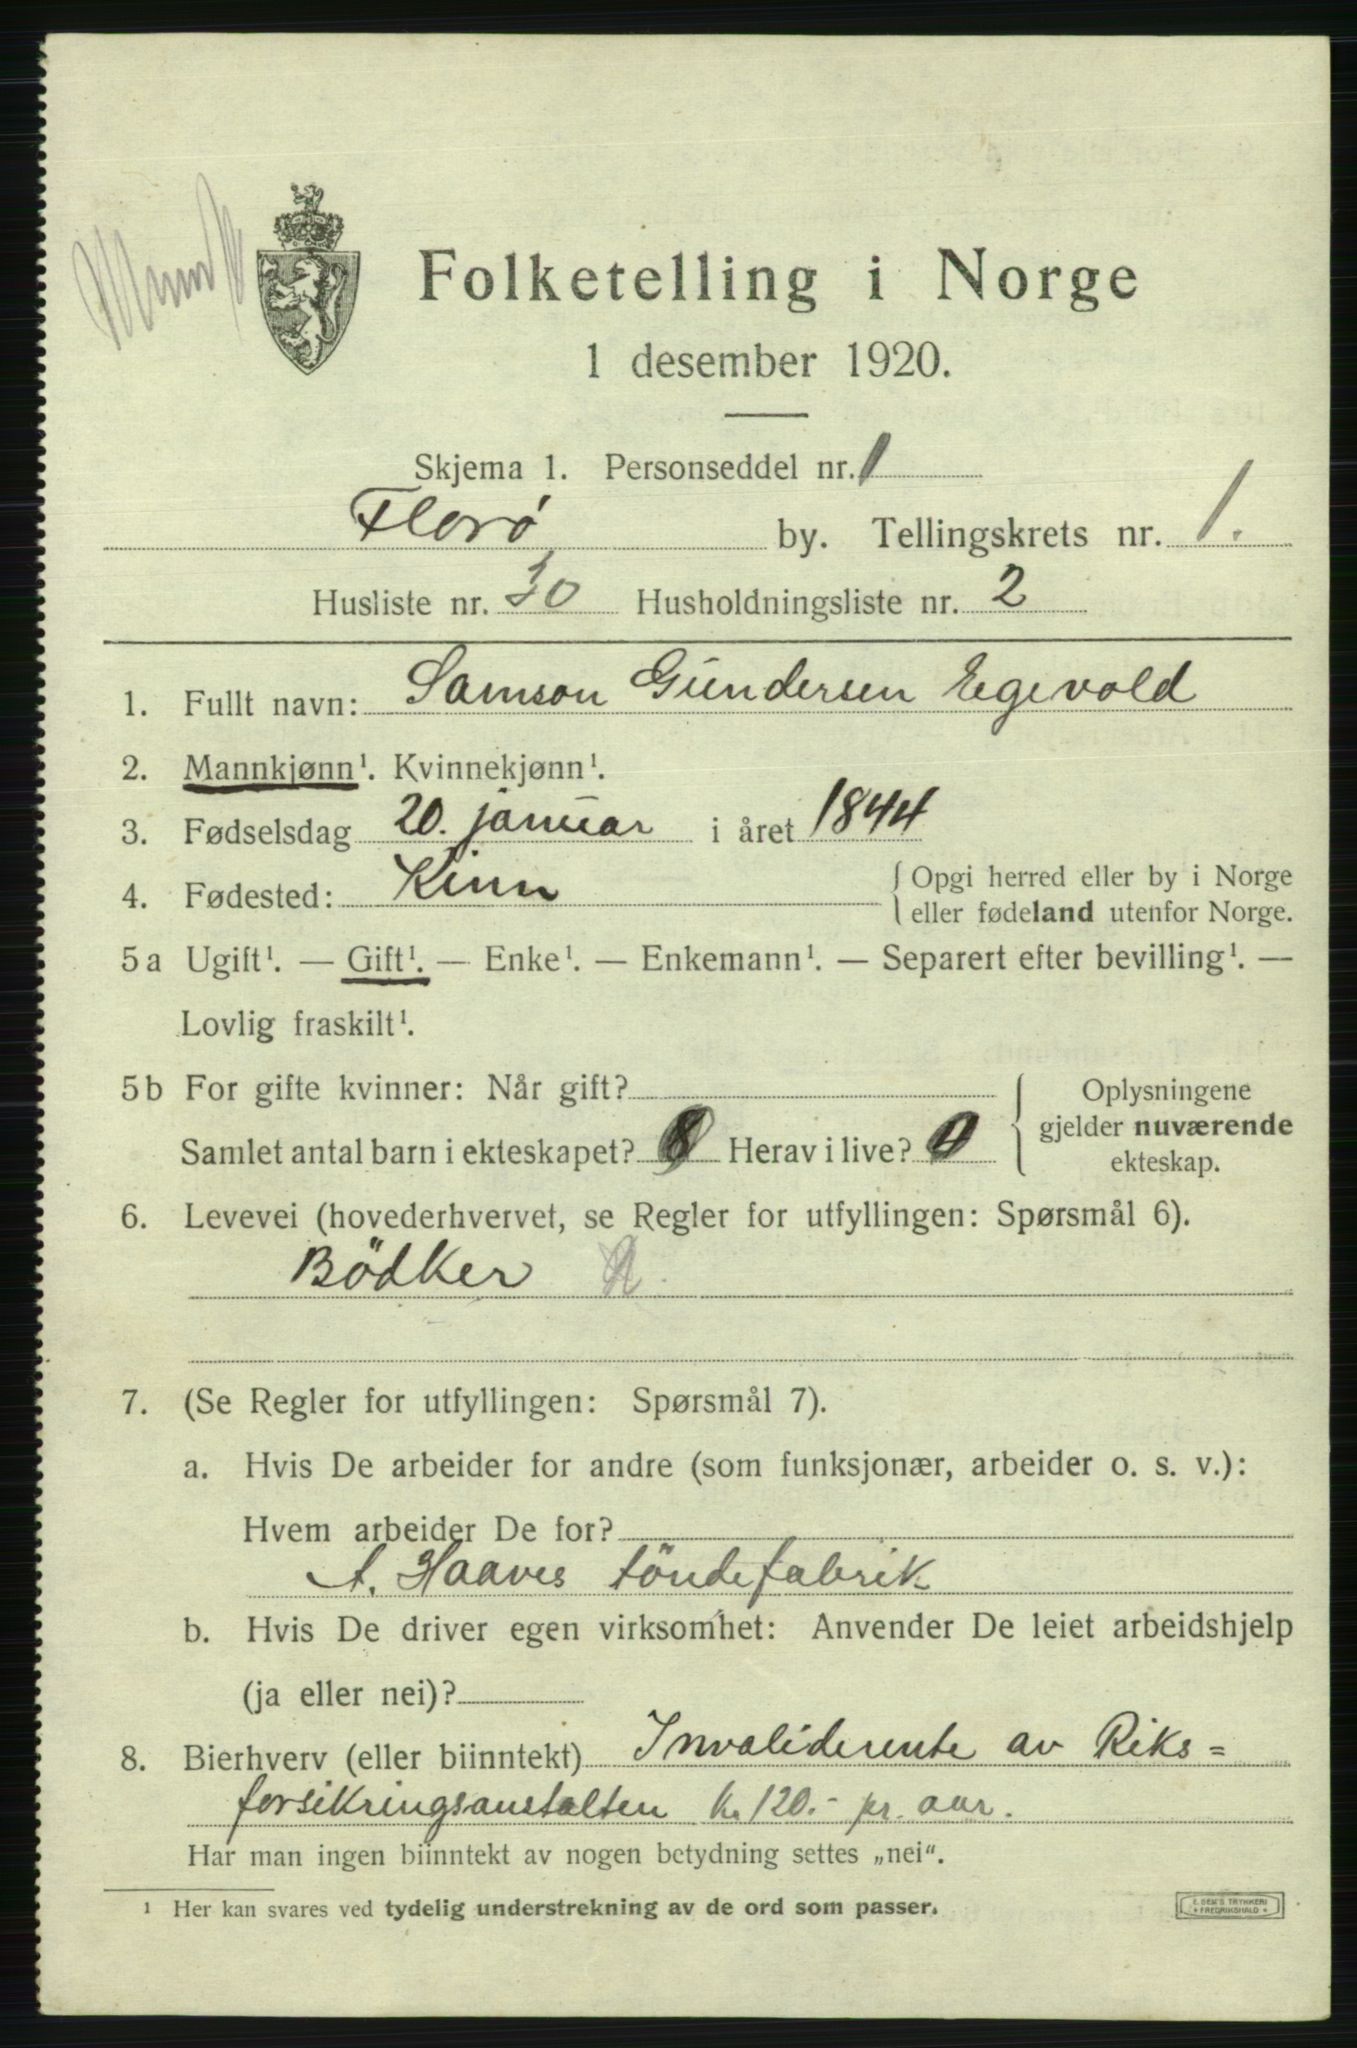 Folketelling i Norge
1 desember 1920.
Skjema 1. Personseddel nr. 1
Florø by. Tellingskrets nr. 1.
Husliste nr. 30 Husholdningsliste nr. 2
1. Fullt navn: Samson Gundersen Egevold
2. Mannkjønn¹. Kvinnekjønn¹.
3. Fødselsdag 20. januar i året 1844
4. Fødested: Kinn { Opgi herred eller by i Norge
eller fødeland utenfor Norge.
5 a Ugift¹. — Gift¹. — Enke¹. — Enkemann¹. — Separert efter bevilling¹. —
Lovlig fraskilt¹.
5 b For gifte kvinner: Når gift? { Oplysningene
gjelder nuværende
ekteskap.
Samlet antal barn i ekteskapet? Herav i live?
6. Levevei (hovederhvervet, se Regler for utfyllingen: Spørsmål 6).
Bödker
7. (Se Regler for utfyllingen: Spørsmål 7).
a. Hvis De arbeider for andre (som funksjonær, arbeider o. s. v.):
Hvem arbeider De for?
A. Haaves töndefabrik
b. Hvis De driver egen virksomhet: Anvender De leiet arbeidshjelp
(ja eller nei)?
8. Bierhverv (eller biinntekt) Invaliderente av Riks=
forsikringsanstalten kr 120.- pr. aar.
Har man ingen biinntekt av nogen betydning settes „nei“.
¹ Her kan svares ved tydelig understrekning av de ord som passer.
E. SEM'S TRYKKERI
FREDRIKSHALD